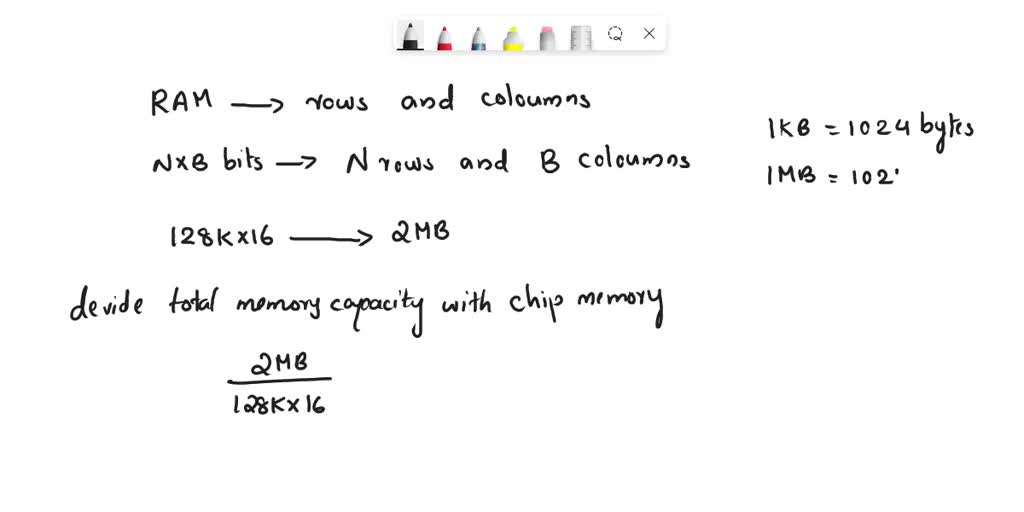 RAM → rows and coloumns
NxB bits → N rows and B coloumns
1KB = 1024 bytes
1MB = 102
128Kx16 → 2MB
devide total memory capacity with chip memory
2MB
128Kx16